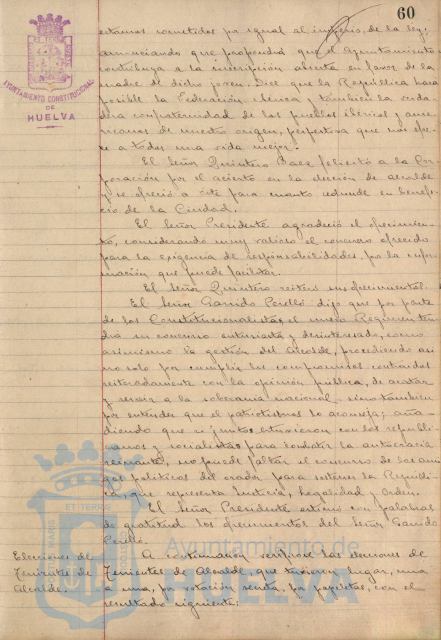 60
AYUNTAMIENTO CONSTITUCIONAL
DE
HUELVA
estamos sometidos por igual al imperio de la ley,
anunciando que propondrá que el Ayuntamiento
contribuya a la suscripción abierta en favor de la
madre de dicho joven. Dice que la República hará
posible la Federación Ibérica y también la verda
dera confraternidad de los pueblos ibéricos y ame
ricanos de nuestro origen, perspectiva que nos ofre
ce a todos una vida mejor.
El Señor Quintero Baez felicitó a la Cor
poración por el acierto en la elección de alcalde
y se ofreció a éste para cuanto redunde en benefi
cio de la Ciudad.
El Señor Presidente agradeció el ofrecimien
to, considerando muy valioso el concurso ofrecido
para la exigencia de responsabilidades, por la infor
mación que puede facilitar.
El Señor Quintero reiteró sus ofrecimientos.
El Señor Garrido Perelló dijo que por parte
de los Constitucionalistas, el nuevo Regimen ten
drá su concurso entusiasta y desinteresado, como
asimismo la gestión del Alcalde, procediendo asi
no solo por cumplir los compromisos contraidos
reiteradamente con la opinión pública, de acatar
y servir a la soberanía nacional, sino tambien
por entender que el patriotismo lo aconseja; aña
diendo que si juntos estuvieron con los republi
canos y socialistas para combatir la autocracia
reinante, no puede faltar el concurso de los ami
gos politicos del orador para sostener la Repúbli
ca, que representa Justicia, legalidad y Orden.
El Señor Presidente estimó con palabras
de gratitud los ofrecimientos del Señor Garrido
Perelló.
Elecciones de
Tenientes de
Alcalde.
A continuación verificose las elecciones de
Tenientes de Alcalde, que tuvieron lugar, una
a una, por votación secreta, por papeletas, con el
resultado siguiente:
ET TERRIS
Ayuntamiento de
HUELVA